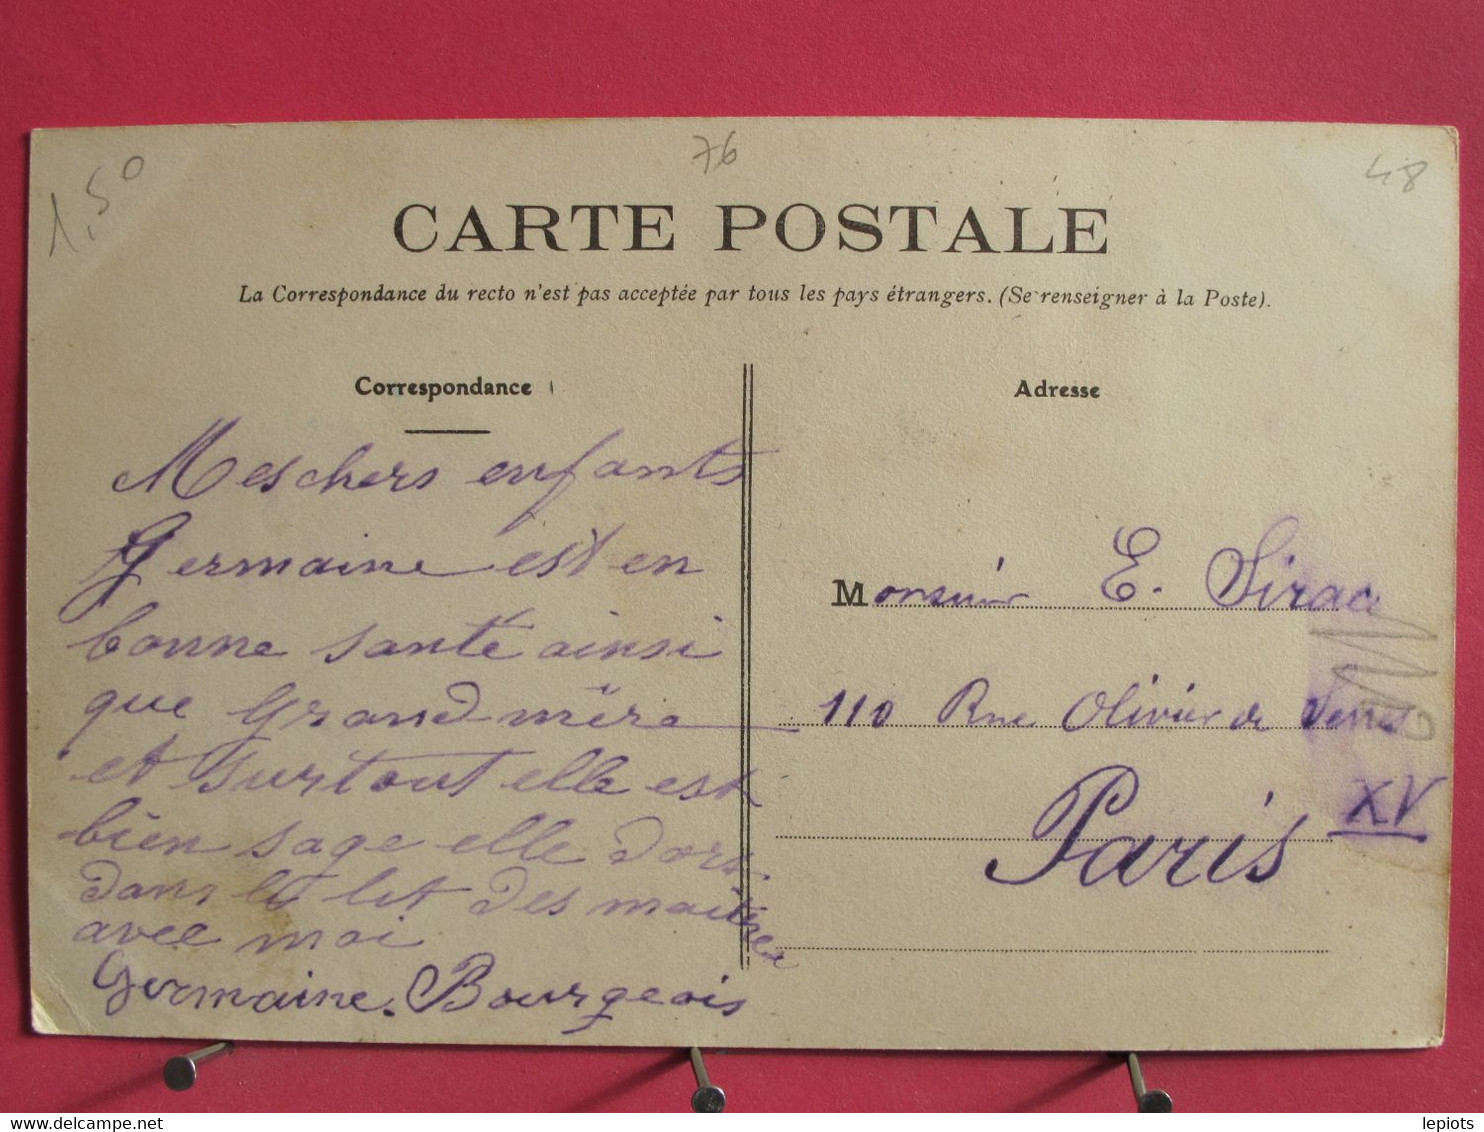 1,50
76
48
CARTE POSTALE
La Correspondance du recto n'est pas acceptée par tous les pays étrangers. (Se renseigner à la Poste).
Correspondance
Mes chers enfants
Germaine est en
bonne santé ainsi
que Grand mère
et surtout elle est
bien sage elle dort
dans le lit des maitres
avec moi
Germaine. Bourgeois
Adresse
Monsieur E. Sirac
110 Rue Olivier de Serres
Paris XV
lepiots
www.delcampe.net